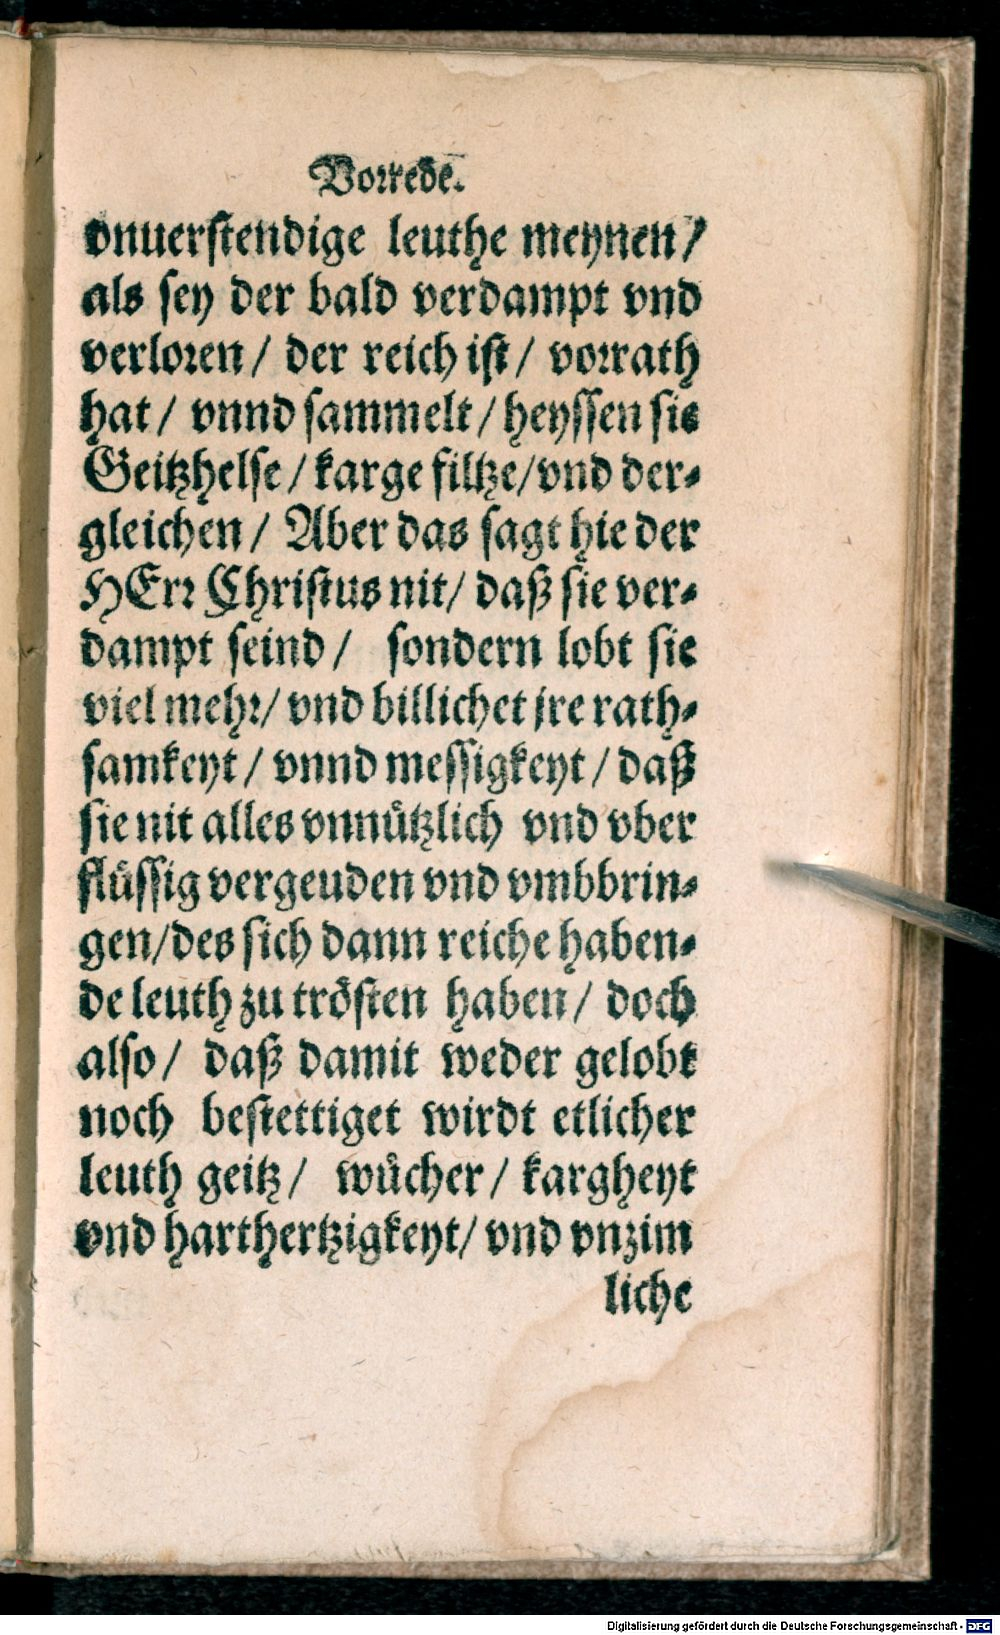 Vorrede.
vnuerstendige leuthe meynen /
als sey der bald verdampt vnd
verloren / der reich ist / vorrath
hat / vnnd sammelt / heyssen sie
Geitzhelse / karge filtze / vnd der-
gleichen / Aber das sagt hie der
HErr Christus nit / daß sie ver-
dampt seind / sondern lobt sie
viel mehr / vnd billichet jre rath-
samkeyt / vnnd messigkeyt / daß
sie nit alles vnnützlich vnd vber
flüssig vergeuden vnd vmbbrin-
gen / des sich dann reiche haben-
de leuth zu trösten haben / doch
also / daß damit weder gelobt
noch bestettiget wirdt etlicher
leuth geitz / wücher / kargheyt
vnd harthertzigkeyt / vnd vnzim
liche
Digitalisierung gefördert durch die Deutsche Forschungsgemeinschaft - DFG